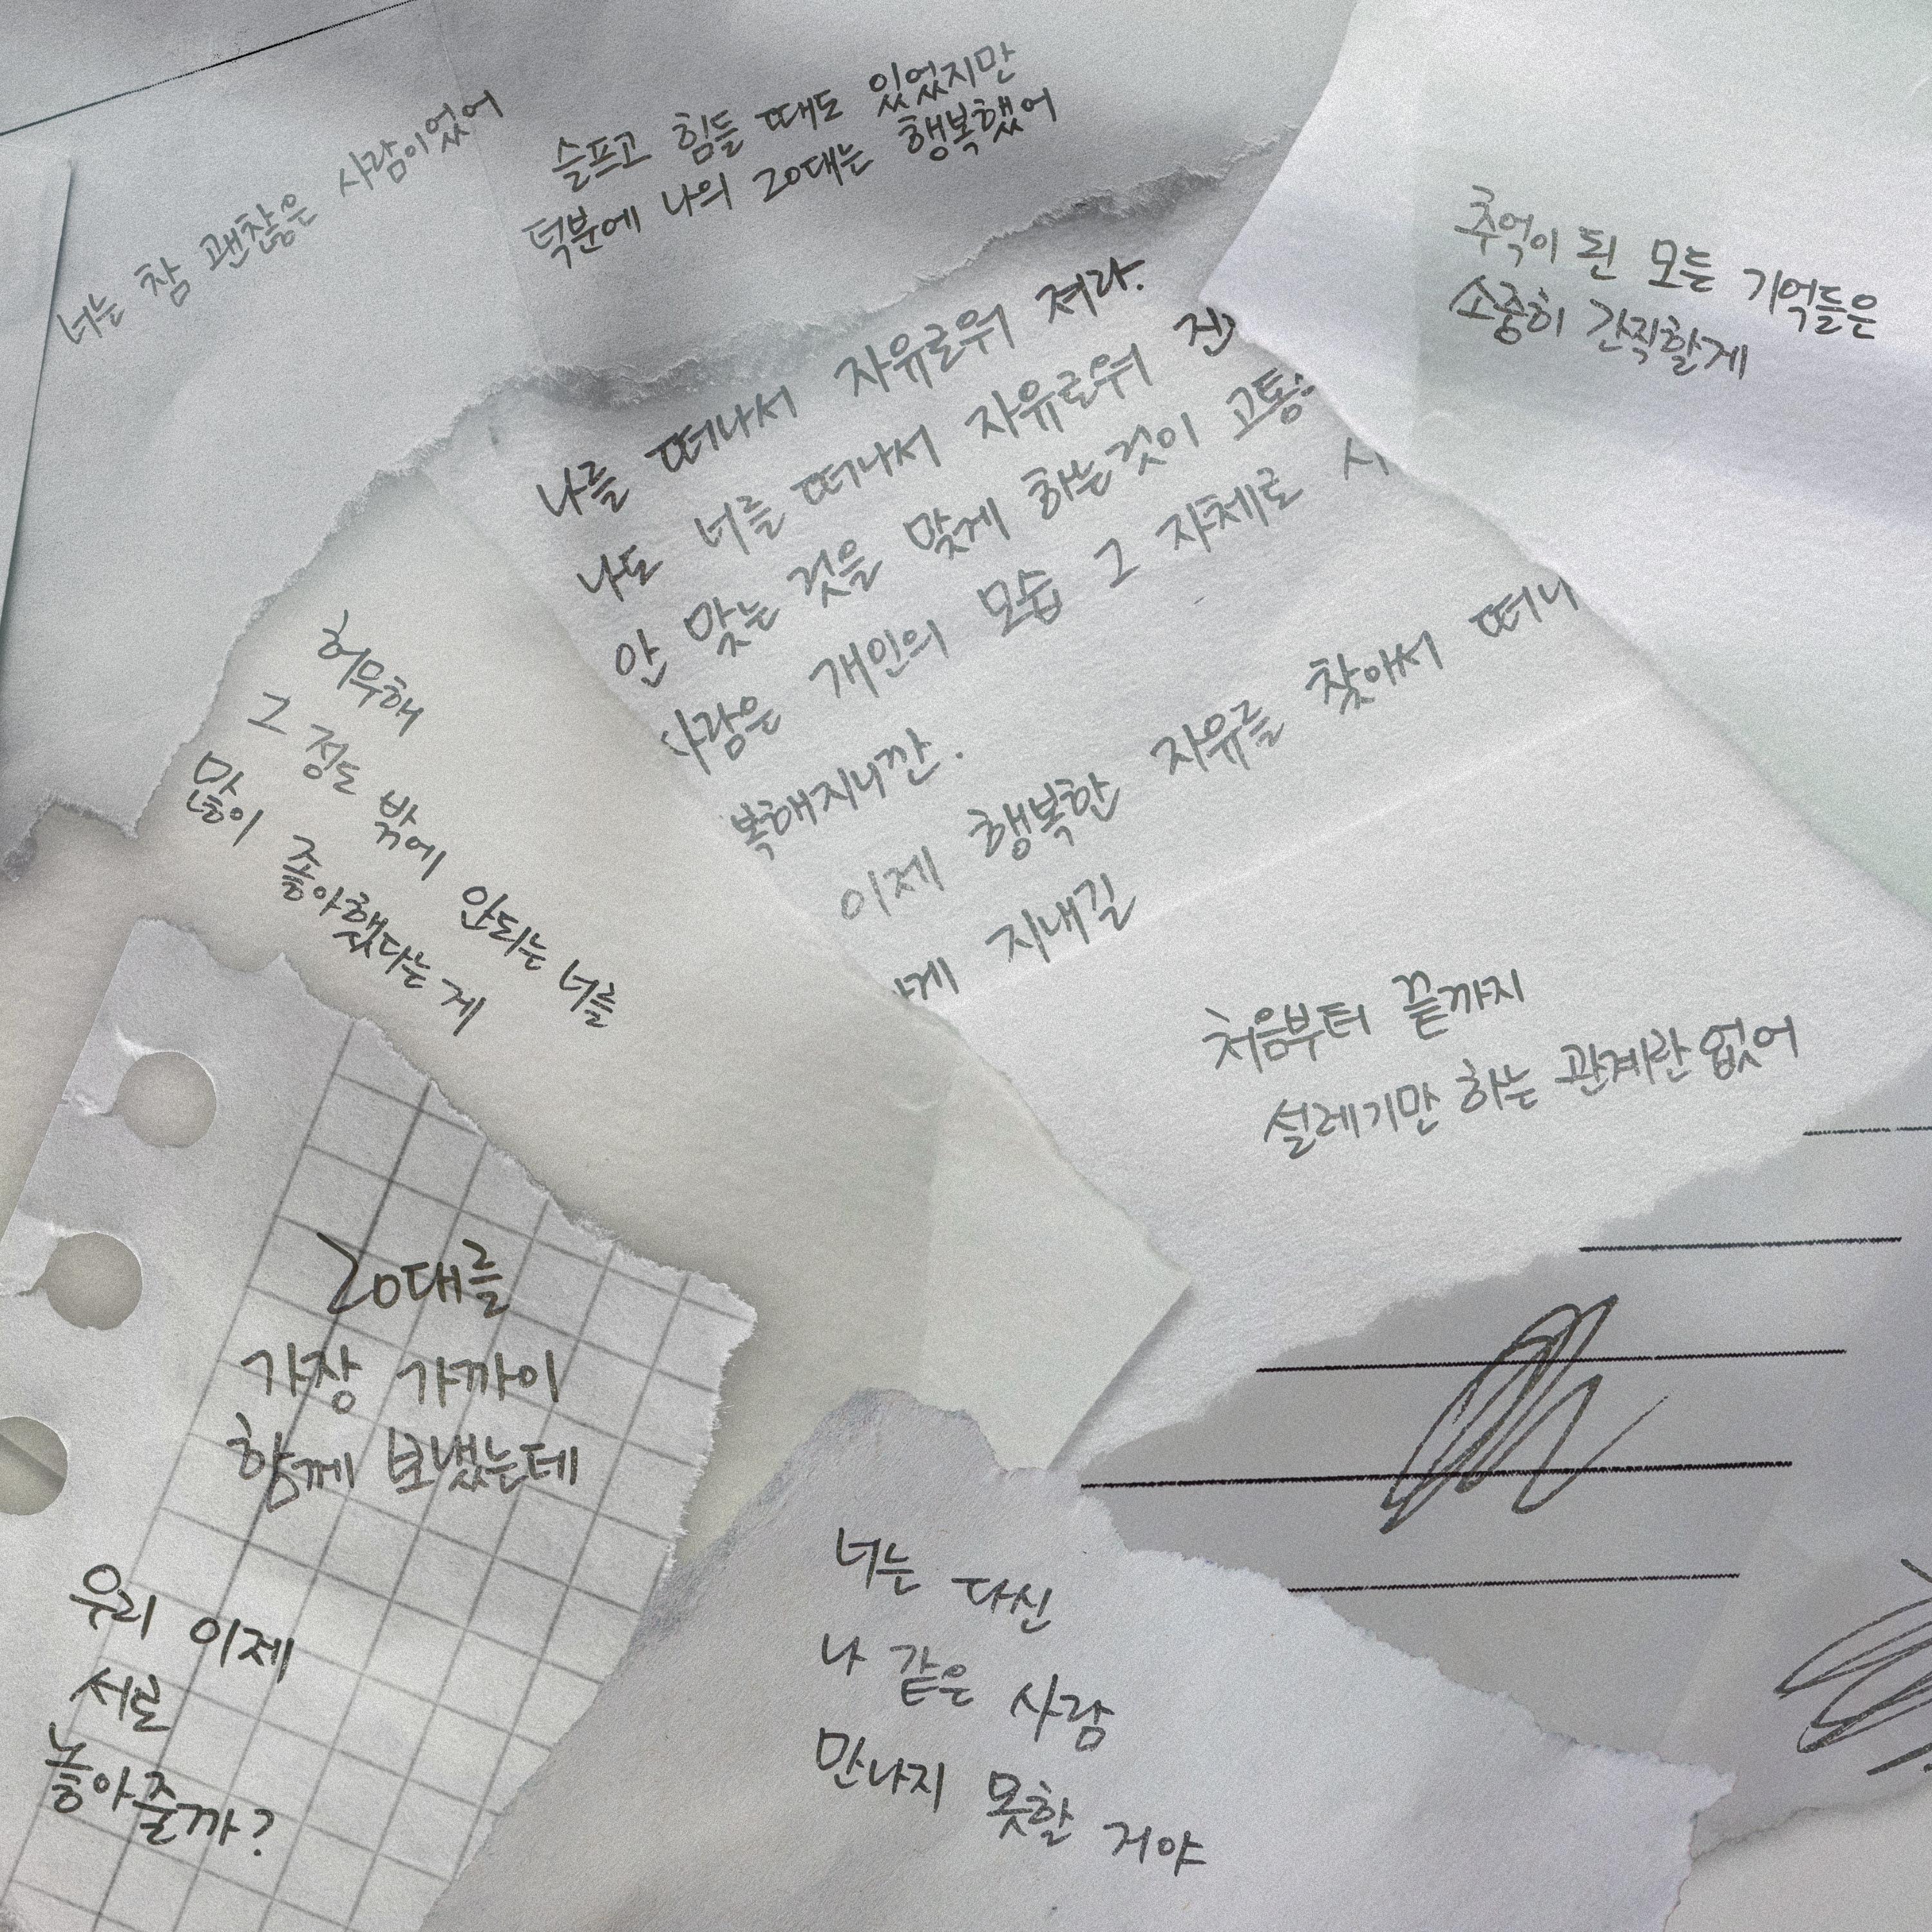 너는 참 괜찮은 사람이었어
슬프고 힘들 때도 있었지만
덕분에 나의 20대는 행복했어
추억이 된 모든 기억들은
소중히 간직할게
나를 떠나서 자유로워 져라.
나도 너를 떠나서 자유로워 진
안 맞는 것을 맞게 하는것이 고통
사람은 개인의 모습 그 자체로
복해지니깐.
이제 행복한 자유를 찾아서 떠나
게 지내길
허무해
그 정도 밖에 안되는 너를
많이 좋아했다는 게
처음부터 끝까지
설레기만 하는 관계란 없어
20대를
가장 가까이
함께 보냈는데
우리 이제
서로
놓아줄까?
너는 다신
나 같은 사람
만나지 못할 거야